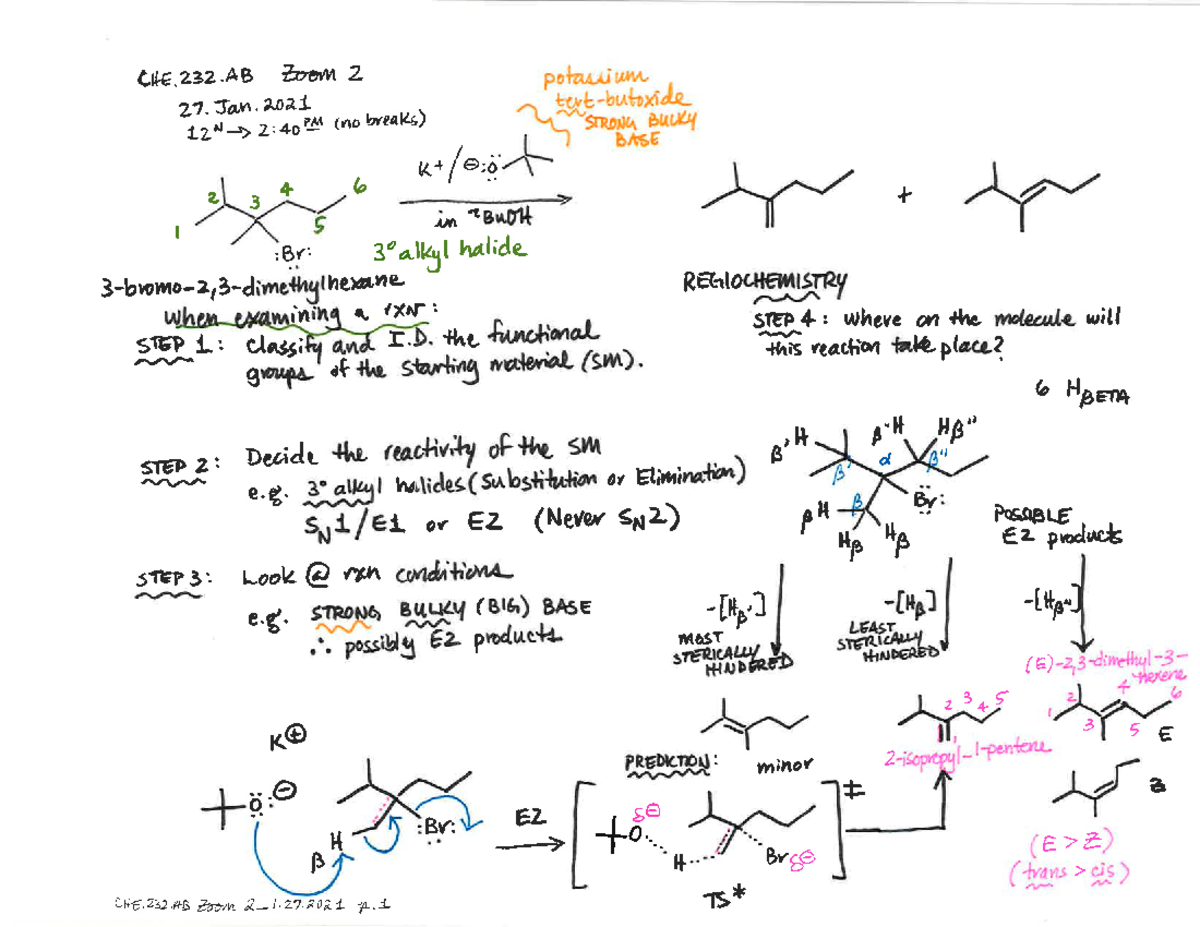 CHE.232.AB Zoom 2
27.Jan.2021
12N → 2:40PM (no breaks)
potassium
tert-butoxide
STRONG BULKY
BASE
K+/⊖:Ö:
in tBuOH
1 2 3 4 5 6
:Br:
3° alkyl halide
+
3-bromo-2,3-dimethylhexane
When examining a rxn:
STEP 1: Classify and I.D. the functional
groups of the starting material (SM).
REGIOCHEMISTRY
STEP 4: Where on the molecule will
this reaction take place?
6 HBETA
STEP 2: Decide the reactivity of the SM
e.g. 3° alkyl halides (Substitution or Elimination)
SN1/E1 or E2 (Never SN2)
β'H β"H Hβ"
β' α β"
βH β Br:
Hβ Hβ
POSSIBLE
E2 products
STEP 3: Look @ rxn conditions
e.g. STRONG, BULKY (BIG) BASE
∴ possibly E2 products
-[Hβ']
MOST
STERICALLY
HINDERED
-[Hβ]
LEAST
STERICALLY
HINDERED
-[Hβ"]
(E)-2,3-dimethyl-3-
hexene
1 2 3 4 5 6
E
minor
1 2 3 4 5
2-isopropyl-1-pentene
Z
(E > Z)
(trans > cis)
PREDICTION:
K⊕
:Ö:⊖
H
β
:Br:
E2
δ⊖
O
H
Br δ⊖
‡
TS*
CHE.232.AB Zoom 2_1.27.2021 p.1